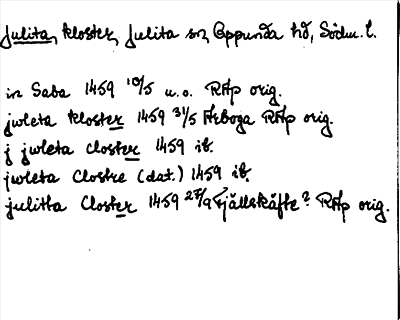 Julita, kloster, Julita sn, Oppunda hd, Södm. l.
in Saba 1459 10/5 u.o. RAp orig.
jwleta kloster 1459 31/5 Arboga RAp orig.
j jwleta closter 1459 ib.
jwleta Clostre (dat.) 1459 ib.
julitta Closter 1459 27/9 Fjällskäfte? RAp orig.